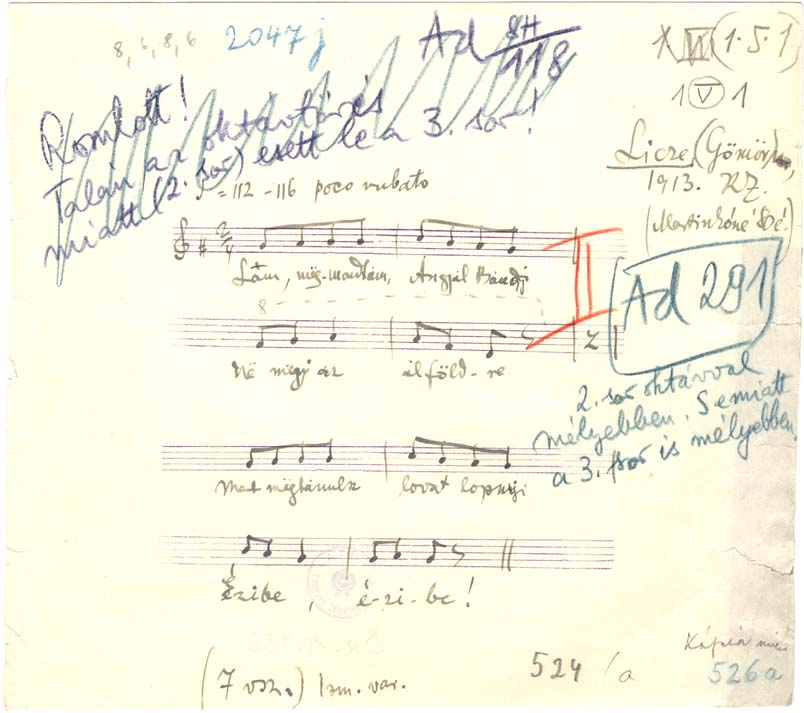 8, 6, 8, 6
2047j
Ad 8H/118
VII (1.5.1)
1 V 1
Romlott!
Talán az oktávtörés
miatt (2. sor) esett le a 3. sor!
Licze (Gömör),
1913.
= 112 - 116 poco rubato
2/4
Lám, még-mondtam, Angyal Bandi
II
Ad 291
8
Né menj az alföld-re
Z
2. sor oktávval
mélyebben. S emiatt
a 3. sor is mélyebben.
Mert mégtanulsz lovat lopnyi
Ézibe, é-zi-be!
(7 vsz.) Ism. var.
524 /a
526a